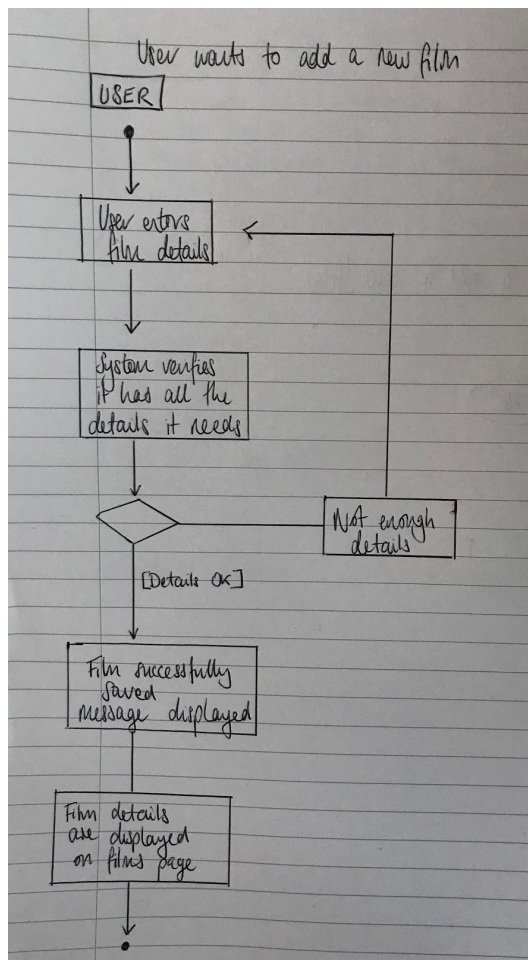 User wants to add a new film
USER
User enters
film details
System verifies
it has all the
details it needs
Not enough
details
[Details OK]
Film successfully
saved
message displayed
Film details
are displayed
on films page